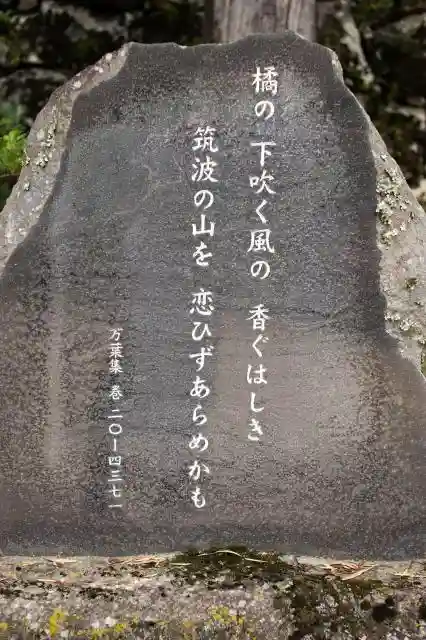 橘の 下吹く風の 香ぐはしき
筑波の山を 恋ひずあらめかも
万葉集 巻二〇ー四三七一